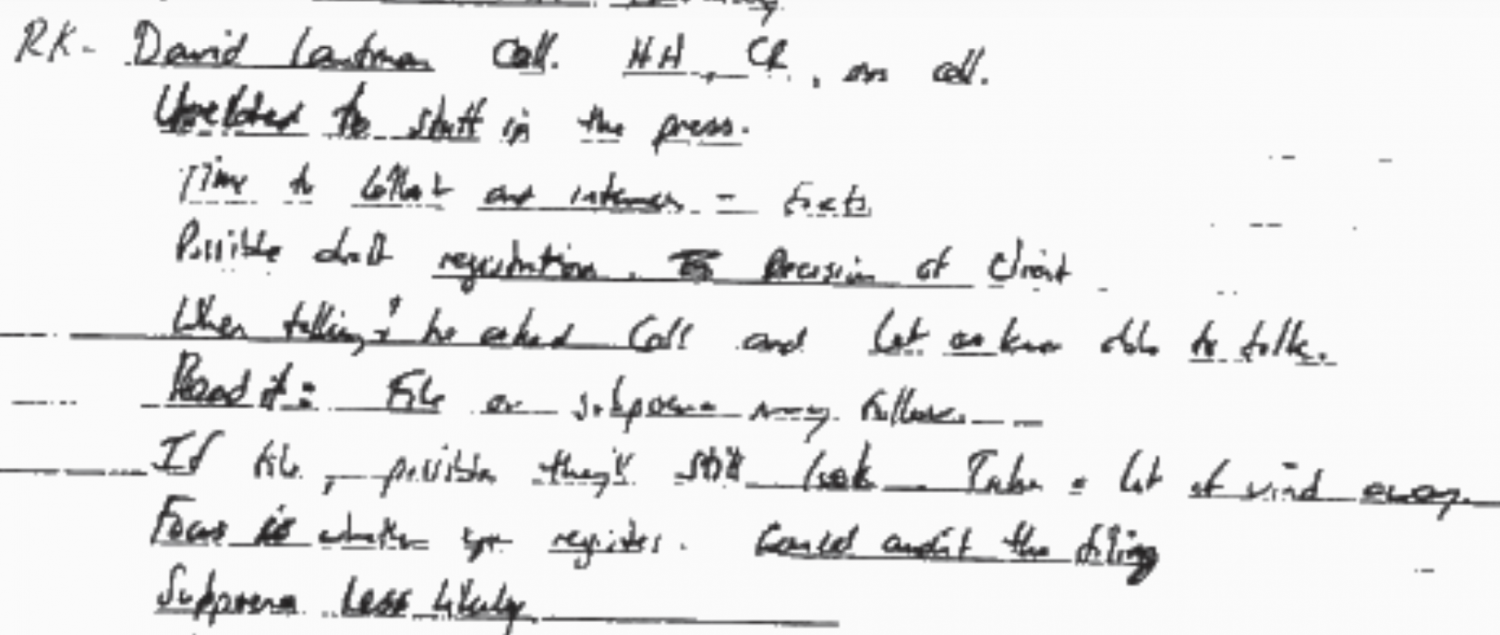 RK- David Laufman call. HH, CR, on call.
Unrelated to stuff in the press.
Time to collect and interview - facts
Possible draft registration. Decision of client
When talking, he asked call and let us know able to talk.
Read it: File or subpoena may follow.
If file, possible they'll still look. Takes a lot of wind away.
Focus is whether you register. Could audit the filing
Subpoena less likely